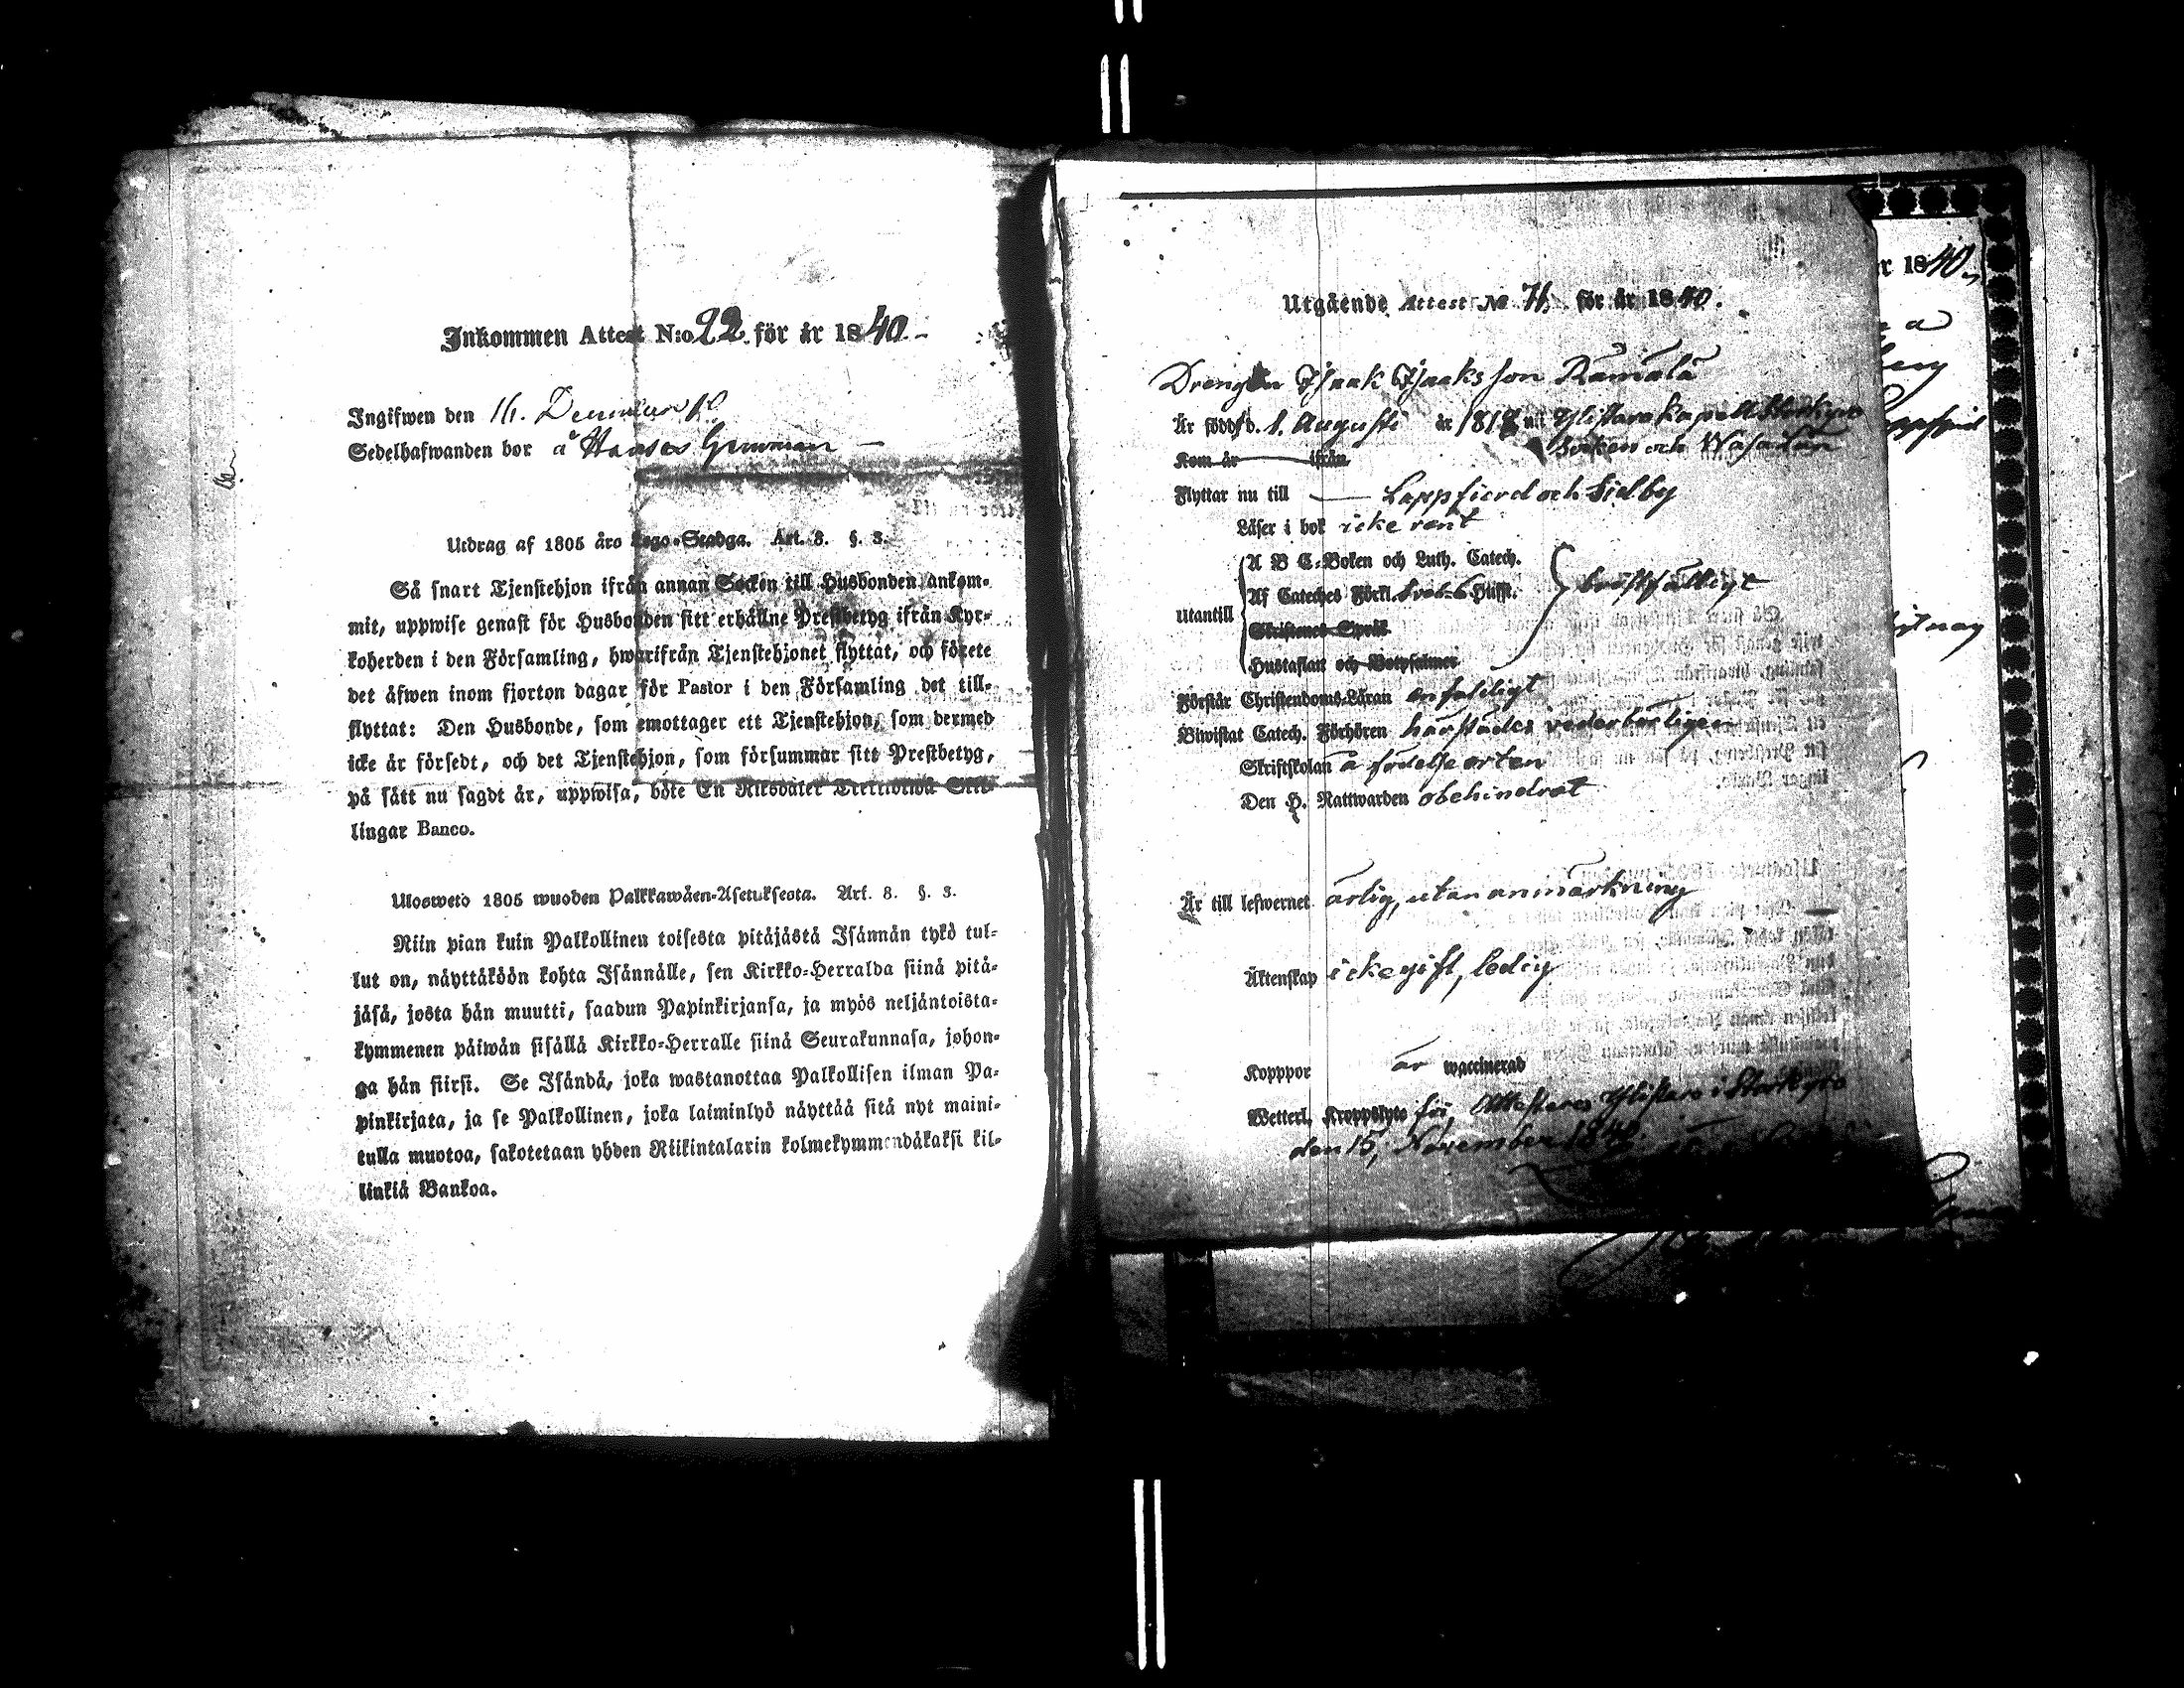 Inkommen Attest N:o 22 för år 1840.
Ingifwen den 16. December
Sedelhafwanden bor å
Utdrag af 1805 års Lego-Stadga. Art. 8. §. 3.
Så snart Tjenstehjon ifrån annan Socken till Husbonden ankom-
mit, uppwise genast för Husbonden sitt erhållne Prestbetyg ifrån Kyr-
koherden i den Församling, hwarifrån Tjenstehjonet flyttat, och förete
det äfwen inom fjorton dagar för Pastor i den Församling det till-
flyttat: Den Husbonde, som emottager ett Tjenstehjon, som dermed
icke är försedt, och det Tjenstehjon, som försummar sitt Prestbetyg,
på sätt nu sagdt är, uppwisa, böte En Riksdaler Trettiotwå Skil-
lingar Banco.
Uloswető 1805 wuoden Palkkawäen-Asetuksesta. Art. 8. §. 3.
Niin pian kuin Palkollinen toisesta pitäjästä Isännän tykö tul-
lut on, näyttäköön kohta Isännälle, sen Kirkko-Herralda siinä pitä-
jäsä, josta hän muutti, saadun Papinkirjansa, ja myös neljäntoista-
kymmenen päiwän sisällä Kirkko-Herralle siinä Seurakunnasa, johon-
ga hän siirsi. Se Isändä, joka wastanottaa Palkollisen ilman Pa-
pinkirjata, ja se Palkollinen, joka laiminlyö näyttää sitä nyt maini-
tulla muotoa, sakotetaan yhden Riikintalarin kolmekymmendäkaksi kil-
linkiä Bankoa.
Utgående Attest No 71. för år 1840.
Drengen Isaak Isaksson Rämälä
Är född d. 1. Augusti år 1818 uti Ylistaro kapell Storkyro
Socken och Wasa län
Kom år ifrån
Flyttar nu till Lappfierd och Sidby
Läser i bok icke rent
utantill
A B C-Boken och Luth. Catech.
Af Cateches Förkl. Svebel. Husst.
Skriftenes Språk
Hustaflan och Botpsalmer
bristfälligt
Förstår Christendoms-Läran enfaldigt
Biwistat Catech. Förhören härstädes vederbörligen
Skriftskolan å födelseorten
Den H. Nattwarden obehindrat
Är till lefwernet ärlig, utan anmärkning
Äktenskap icke gift, ledig
Kopppor är waccinerad
Wetterl. Kroppslyte fri, Attesteras Ylistaro i Storkyro
den 15, November 1840
r 1840